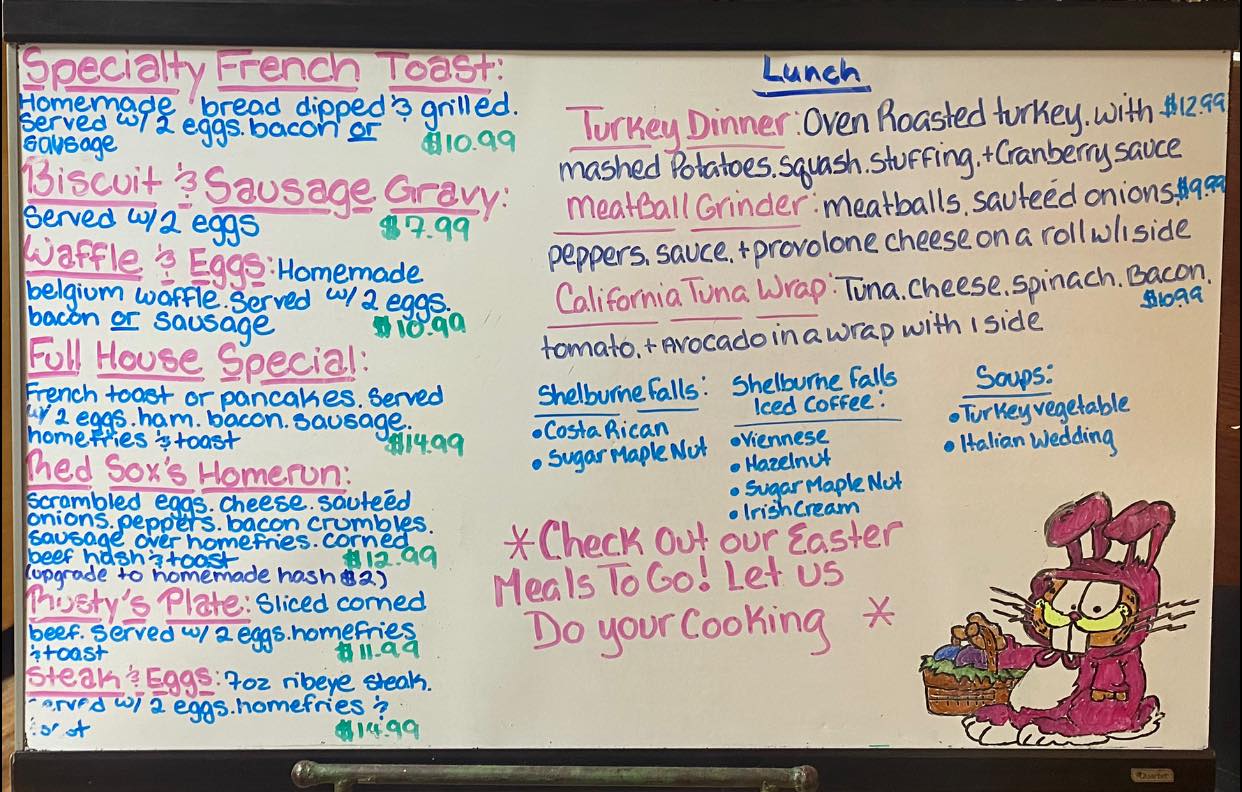 Specialty French Toast:
Homemade bread dipped & grilled.
Served w/ 2 eggs. bacon or
sausage $10.99
Biscuit & Sausage Gravy:
Served w/ 2 eggs $7.99
Waffle & Eggs: Homemade
belgium waffle. Served w/ 2 eggs.
bacon or sausage $10.99
Full House Special:
French toast or pancakes. Served
w/ 2 eggs. ham. bacon. sausage.
homefries & toast $14.99
Red Sox's Homerun:
Scrambled eggs. cheese. sauteéd
onions. peppers. bacon crumbles.
sausage over homefries. corned
beef hash & toast $12.99
(upgrade to homemade hash $2)
Rusty's Plate: Sliced corned
beef. Served w/ 2 eggs. homefries
& toast $11.99
Steak & Eggs: 7oz ribeye steak.
served w/ 2 eggs. homefries &
$14.99
Lunch
Turkey Dinner: Oven Roasted turkey. with $12.99
mashed Potatoes. squash. stuffing. + Cranberry sauce
Meatball Grinder: meatballs. sauteéd onions. $9.99
peppers. sauce. + provolone cheese on a roll w/ 1 side
California Tuna Wrap: Tuna. cheese. spinach. Bacon.
$10.99
tomato. + Avocado in a wrap with 1 side
Shelburne Falls:
• Costa Rican
• Sugar Maple Nut
Shelburne Falls
Iced Coffee:
• Viennese
• Hazelnut
• Sugar Maple Nut
• Irish Cream
Soups:
• Turkey vegetable
• Italian Wedding
* Check out our Easter
Meals To Go! Let us
Do your Cooking *
Quartet